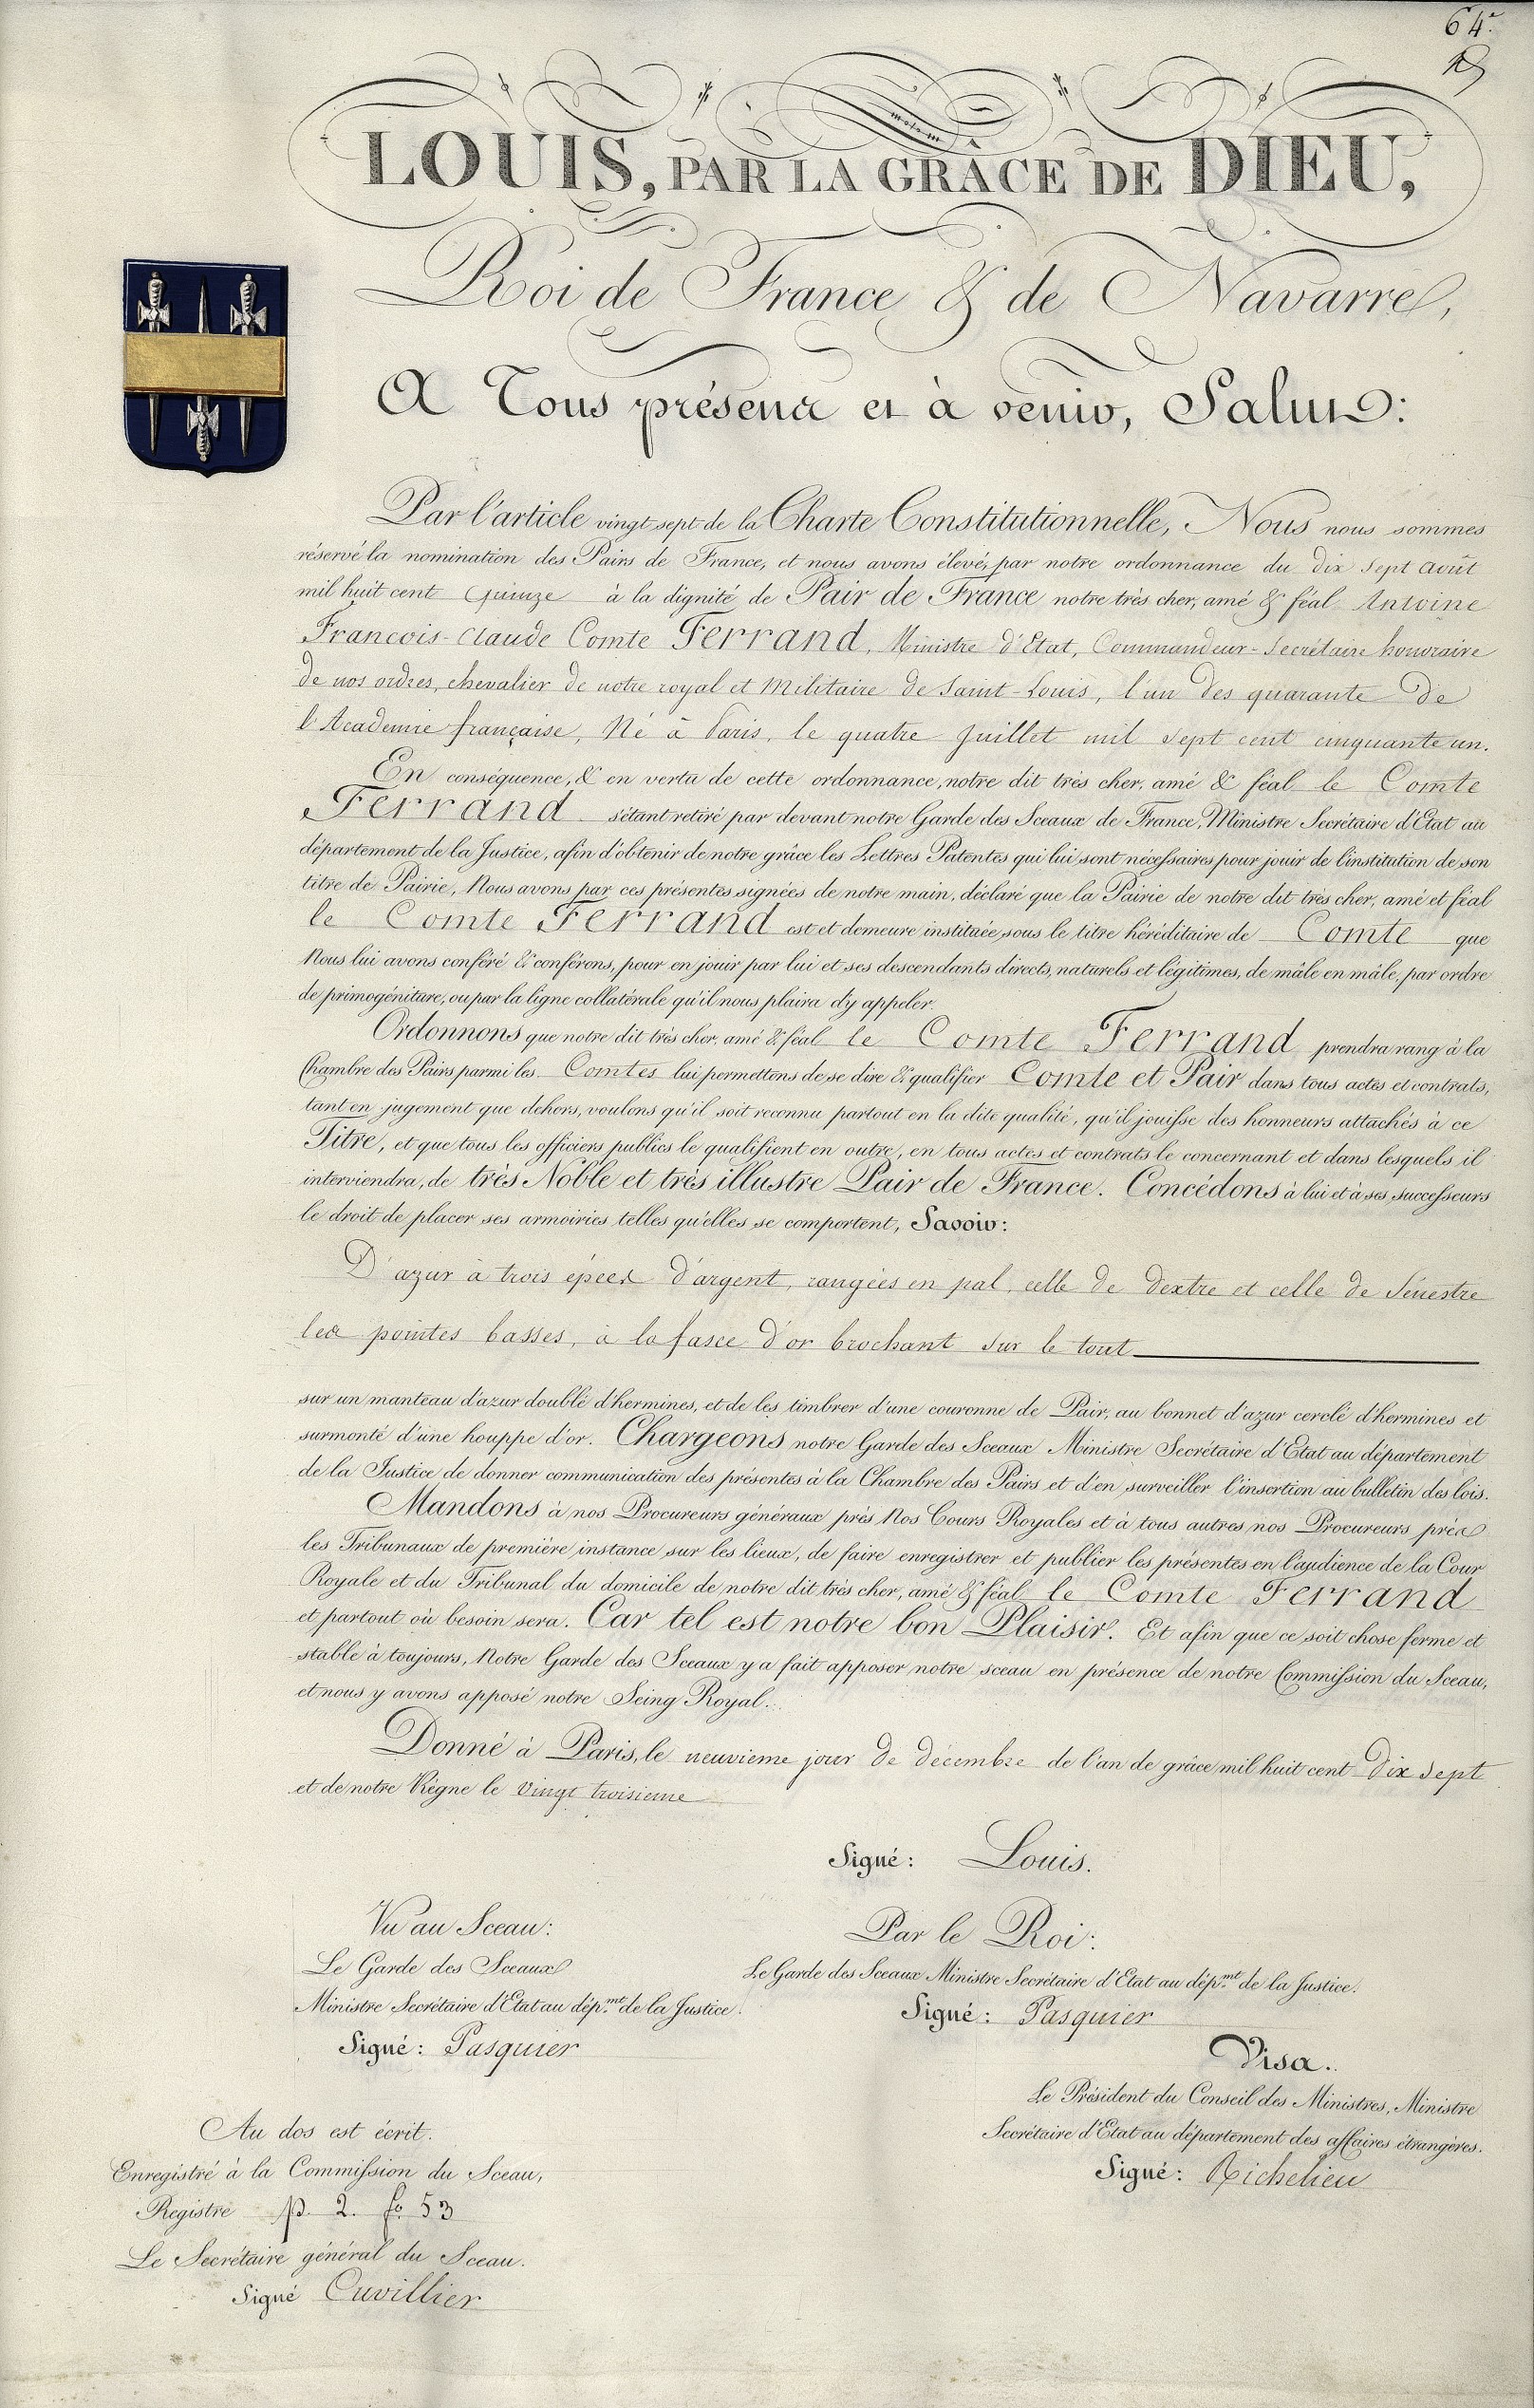 64.e
LOUIS, PAR LA GRÂCE DE DIEU,
Roi de France & de Navarre,
A Tous présens et à venir, Salut:
Par l'article vingt sept de la Charte Constitutionnelle, Nous nous sommes
réservé la nomination des Pairs de France, et nous avons élevé, par notre ordonnance du dix sept août
mil huit cent quinze à la dignité de Pair de France notre très cher, amé & féal Antoine
François-Claude Comte Ferrand, Ministre d'Etat, Commandeur-Secrétaire honoraire
de nos ordres, chevalier de notre royal et Militaire de Saint-Louis, l'un des quarante de
l'Academie française, Né à Paris, le quatre Juillet mil sept cent cinquante un.
En conséquence, & en vertu de cette ordonnance, notre dit très cher, amé & féal le Comte
Ferrand s'étant retiré par devant notre Garde des Sceaux de France, Ministre Secrétaire d'Etat au
département de la Justice, afin d'obtenir de notre grâce les Lettres Patentes qui lui sont nécessaires pour jouir de l'institution de son
titre de Pairie, Nous avons par ces présentes signées de notre main, déclaré que la Pairie de notre dit très cher, amé et féal
le Comte Ferrand est et demeure instituée sous le titre héréditaire de Comte que
Nous lui avons conféré & conférons, pour en jouir par lui et ses descendants directs, naturels et légitimes, de mâle en mâle, par ordre
de primogéniture, ou par la ligne collatérale qu'il nous plaira d'y appeler.
Ordonnons que notre dit très cher, amé & féal le Comte Ferrand prendra rang à la
Chambre des Pairs parmi les Comtes lui permettons de se dire & qualifier Comte et Pair dans tous actes et contrats,
tant en jugement que dehors, voulons qu'il soit reconnu partout en la dite qualité, qu'il jouisse des honneurs attachés à ce
Titre, et que tous les officiers publics le qualifient en outre, en tous actes et contrats le concernant et dans lesquels il
interviendra, de très Noble et très illustre Pair de France. Concédons à lui et à ses successeurs
le droit de placer ses armoiries telles qu'elles se comportent, Savoir:
D'azur à trois épées d'argent, rangées en pal, celle de dextre et celle de Sénestre
les pointes basses, à la fasce d'or brochant sur le tout
sur un manteau d'azur doublé d'hermines, et de les timbrer d'une couronne de Pair, au bonnet d'azur cerclé d'hermines et
surmonté d'une houppe d'or. Chargeons notre Garde des Sceaux Ministre Secrétaire d'Etat au département
de la Justice de donner communication des présentes à la Chambre des Pairs et d'en surveiller l'insertion au bulletin des lois.
Mandons à nos Procureurs généraux près Nos Cours Royales et à tous autres nos Procureurs près
les Tribunaux de première instance sur les lieux, de faire enregistrer et publier les présentes en l'audience de la Cour
Royale et du Tribunal du domicile de notre dit très cher, amé & féal le Comte Ferrand
et partout où besoin sera. Car tel est notre bon Plaisir. Et afin que ce soit chose ferme et
stable à toujours, Notre Garde des Sceaux y a fait apposer notre sceau en présence de notre Commission du Sceau,
et nous y avons apposé notre Seing Royal.
Donné à Paris, le neuvieme jour de décembre de l'an de grâce mil huit cent dix sept
et de notre Règne le vingt troisieme
Signé: Louis.
Vu au Sceau:
Le Garde des Sceaux
Ministre Secrétaire d'Etat au dép.mt de la Justice.
Signé: Pasquier
Par le Roi:
Le Garde des Sceaux Ministre Secrétaire d'Etat au dép.mt de la Justice.
Signé: Pasquier
Visa.
Le Président du Conseil des Ministres, Ministre
Secrétaire d'Etat au département des affaires étrangères.
Signé: Richelieu
Au dos est écrit.
Enregistré à la Commission du Sceau,
Registre p. 2. fo. 53
Le Secrétaire général du Sceau.
Signé Cuvillier